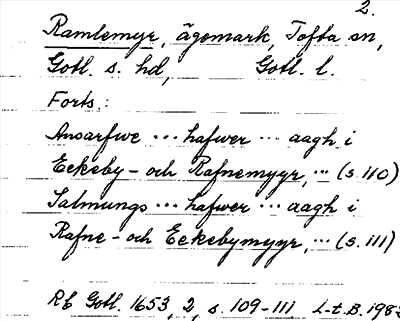 2.
Ramlemyr, ägomark, Tofta sn,
Gotl. s. hd, Gotl. l.
Forts.:
Ansarfwe ... hafwer ... aagh i
Eckeby- och Rafnemyyr, ... (s. 110)
Salmungs ... hafwer ... aagh i
Rafne- och Eckebymyyr, ... (s. 111)
Rb Gotl. 1653, 2, s. 109-111 L-t.B. 198